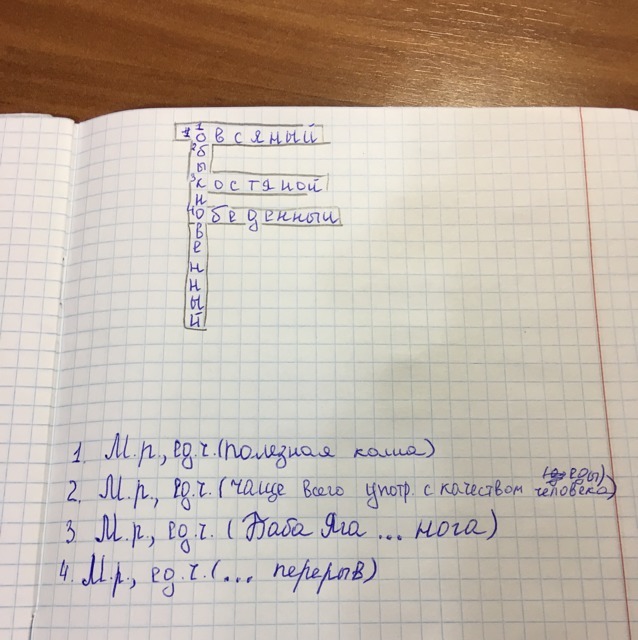 1 овсяный
2 б
ы
3 костяной
н
4 обеденный
в
е
н
н
ы
й
1. М.р., ед.ч. (полезная каша)
2. М.р., ед.ч. (чаще всего употр. с качеством человека еды)
3 М.р., ед.ч. (Баба Яга ... нога)
4. М.р., ед.ч. (... перерыв)